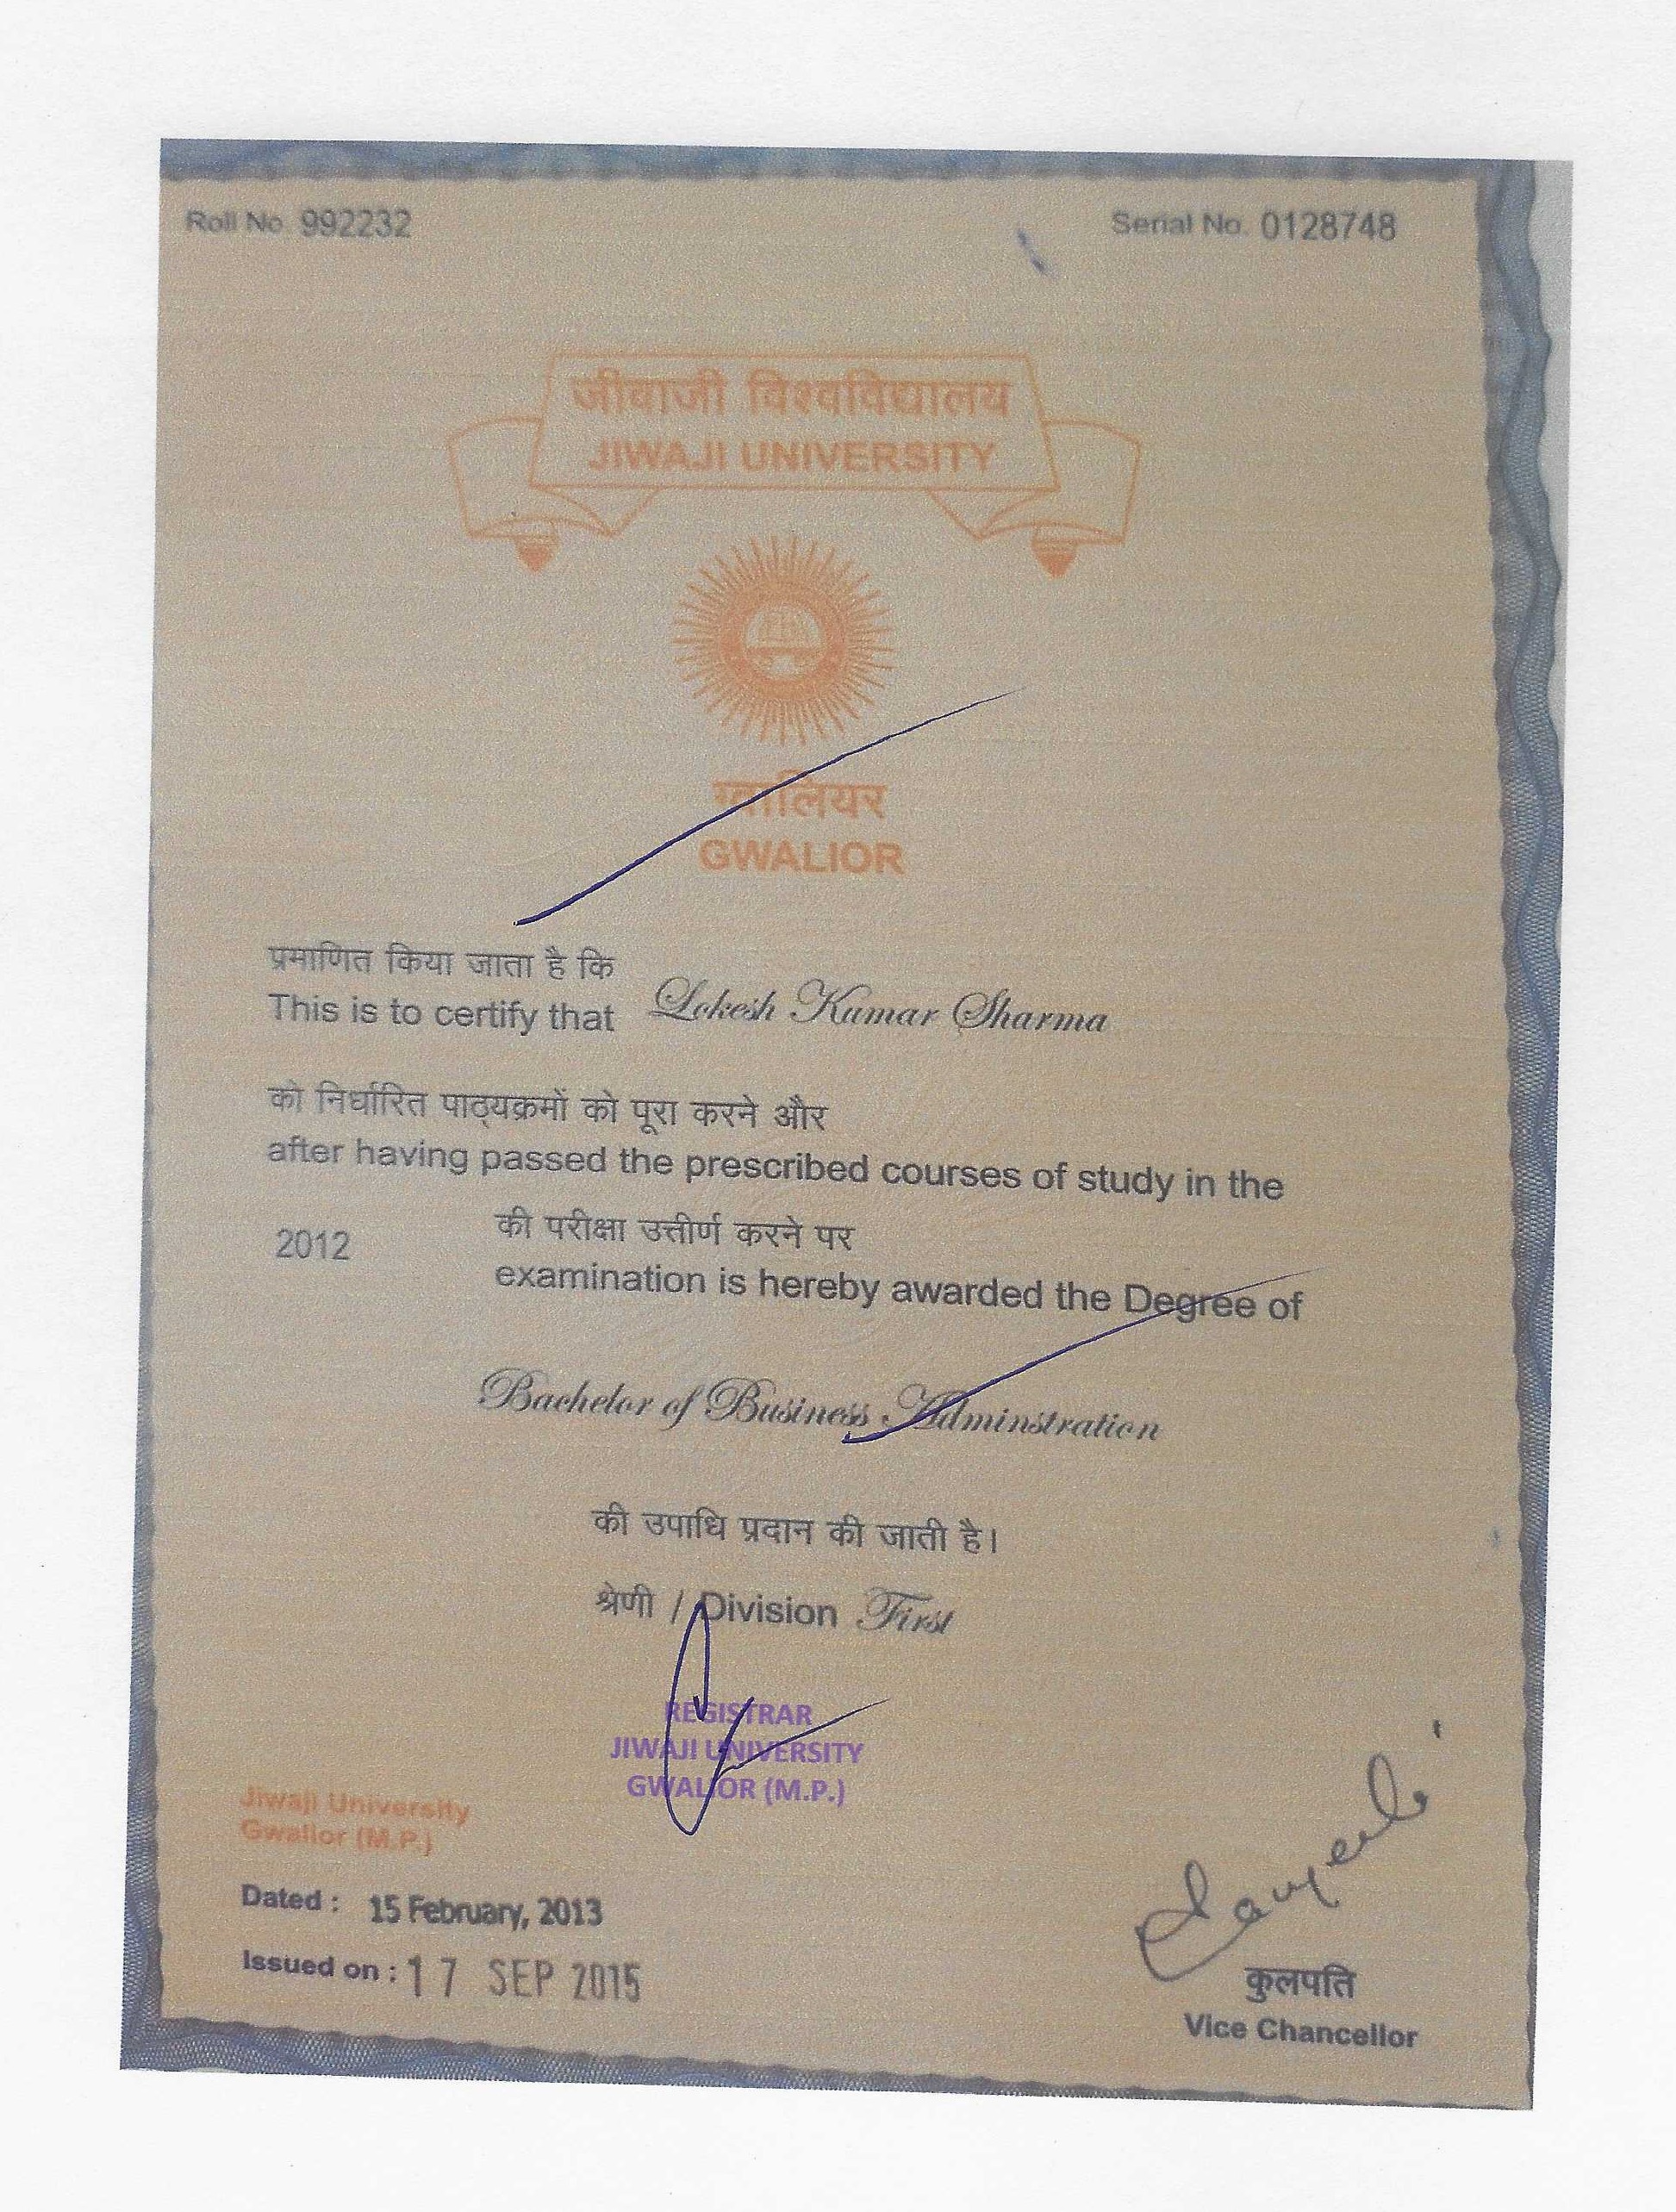 Roll No 992232
Serial No. 0128748
जीवाजी विश्वविद्यालय
JIWAJI UNIVERSITY
ग्वालियर
GWALIOR
प्रमाणित किया जाता है कि
This is to certify that Lokesh Kumar Sharma
को निर्धारित पाठ्यक्रमों को पूरा करने और
after having passed the prescribed courses of study in the
2012 की परीक्षा उत्तीर्ण करने पर
examination is hereby awarded the Degree of
Bachelor of Business Adminstration
की उपाधि प्रदान की जाती है।
श्रेणी / Division First
REGISTRAR
JIWAJI UNIVERSITY
GWALIOR (M.P.)
Jiwaji University
Gwalior (M.P.)
Dated : 15 February, 2013
Issued on : 17 SEP 2015
कुलपति
Vice Chancellor